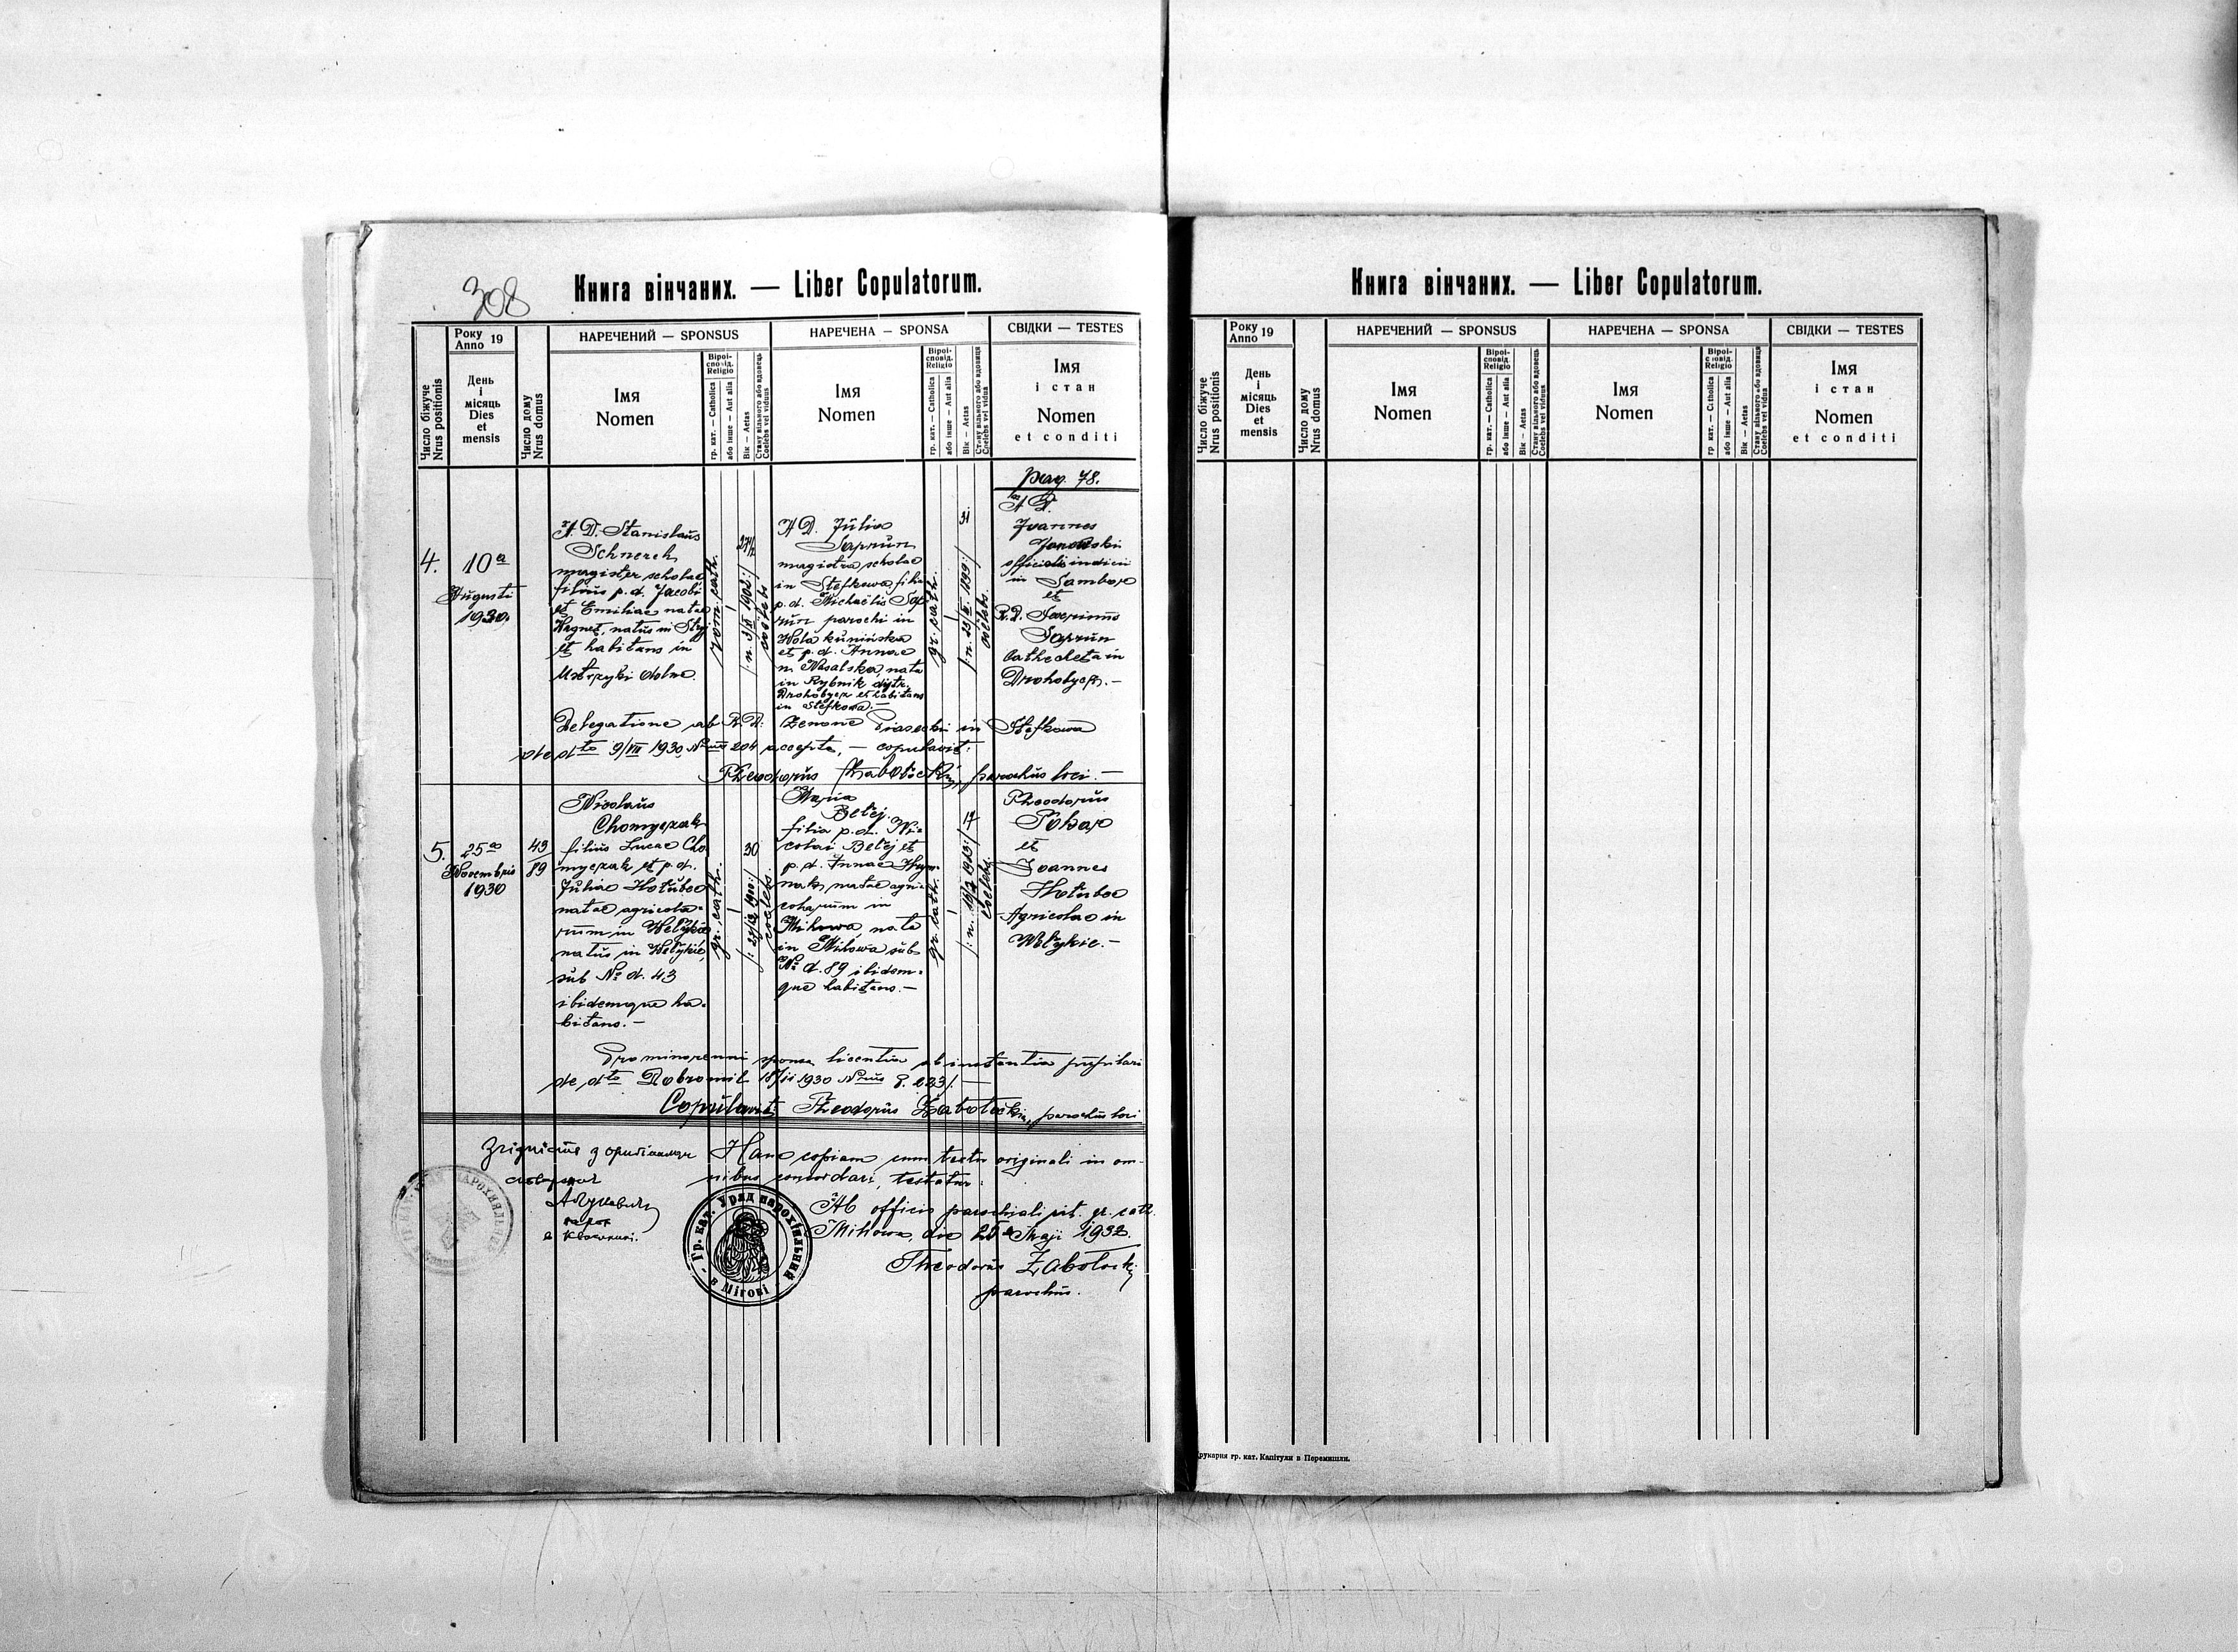 308
Книга вінчаних. — Liber Copulatorum.
Число біжуче
Nrus positionis
Року
Anno 19
День
і
місяць
Dies
et
mensis
Число дому
Nrus domus
НАРЕЧЕНИЙ — SPONSUS
Імя
Nomen
Віроі-
сповід.
Religio
гр. кат. — Catholica
або інше — Aut alia
Вік — Aetas
Стану вільного або вдовець
Coelebs vel viduus
НАРЕЧЕНА — SPONSA
Імя
Nomen
Віроі-
сповід.
Religio
гр. кат. — Catholica
або інше — Aut alia
Вік — Aetas
Стану вільного або вдовиця
Coelebs vel vidua
СВІДКИ — TESTES
Імя
і стан
Nomen
et conditi
pag. 78.
4.
10a
Augusti
1930.
A. D. Stanislaus
Schnerch
magister scholae
filius p. d. Jacobi
et Emiliae natae
Wagnet, natus in Stryj
et habitans in
Ustrzyki dolne.
rom. cath.
27½
/: n. 3/II 1902:/
coelebs
A D. Julia
Saprun
magistra scholae
in Stefkowa filia
p. d. Michaëlis Sap
run parochi in
Wola
et p. d. Annae
n. Nasalska, nata
in Rybnik distr.
Drohobycz et habitans
in Stefkowa.—
gr. cath.
31
coelebs.
A D.
Joannes
Janowski
officialis
in Sambor
et
R. D. Severinus
Saprun
Cathecheta in
Drohobycz.—
Delegatione ab R. D. Zenone Piasecki in Stefkowa
de dto 9/VII 1930, Nrus 204 accepta, — copulavit:
Theodorus Zabolocki, parochus loci.—
5.
25a
Novembris
1930
43
89
Nicolaus
Chomyczak
filius Lucae Cho
myczak et p. d.
Julia Hołuboc
natae agricola-
rum in Welykie
natus in Welykie,
sub No d. 43
ibidemque ha-
bitans.—
gr. cath.
30
coelebs.
Maria
Betej
filia p. d. Ni-
colai Betej et
p. d. Annae
natae agri-
colarum in
Mihowa, nata
in Mihowa sub
No d. 89 ibidem-
que habitans.—
gr. cath.
17
coelebs.
Theodorus
et
Joannes
Hołuboc
Agricolae in
Welykie.—
Pro minorenni sponsa licentia ab instantia pupilari
de dto Dobromil 18/11 1930 Nrus P. 223/.—
Copulavit: Theodorus Zabolocki, parochus loci
Hanc copiam cum textu originali in om-
nibus concordari, testatur:
Ab officio parochiali rit. gr. cath.
Mihowa, die 25a Maji 1932.
Theodorus Zabolocki
parochus.
Гр. кат. Уряд парохіяльний
в Мігові
Книга вінчаних. — Liber Copulatorum.
Число біжуче
Nrus positionis
Року
Anno 19
День
і
місяць
Dies
et
mensis
Число дому
Nrus domus
НАРЕЧЕНИЙ — SPONSUS
Імя
Nomen
Віроі-
сповід.
Religio
гр. кат. — Catholica
або інше — Aut alia
Вік — Aetas
Стану вільного або вдовець
Coelebs vel viduus
НАРЕЧЕНА — SPONSA
Імя
Nomen
Віроі-
сповід.
Religio
гр. кат. — Catholica
або інше — Aut alia
Вік — Aetas
Стану вільного або вдовиця
Coelebs vel vidua
СВІДКИ — TESTES
Імя
і стан
Nomen
et conditi
рукарня гр. кат. Капітули в Перемишли.